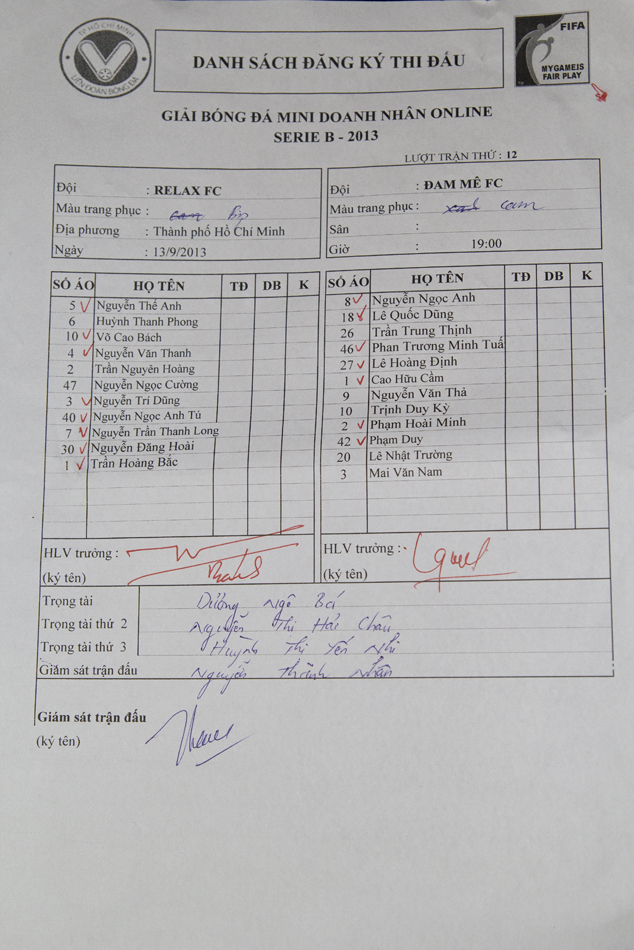 TP HỒ CHÍ MINH
LIÊN ĐOÀN BÓNG ĐÁ
DANH SÁCH ĐĂNG KÝ THI ĐẤU
FIFA
MY GAME IS
FAIR PLAY
GIẢI BÓNG ĐÁ MINI DOANH NHÂN ONLINE
SERIE B - 2013
LƯỢT TRẬN THỨ : 12
Đội : RELAX FC
Màu trang phục :
Địa phương : Thành phố Hồ Chí Minh
Ngày : 13/9/2013
Đội : ĐAM MÊ FC
Màu trang phục : xanh cam
Sân :
Giờ : 19:00
SỐ ÁO HỌ TÊN TĐ DB K
5 Nguyễn Thế Anh
6 Huỳnh Thanh Phong
10 Võ Cao Bách
4 Nguyễn Văn Thanh
2 Trần Nguyên Hoàng
47 Nguyễn Ngọc Cường
3 Nguyễn Trí Dũng
40 Nguyễn Ngọc Anh Tú
7 Nguyễn Trần Thanh Long
30 Nguyễn Đăng Hoài
1 Trần Hoàng Bắc
HLV trưởng :
(ký tên)
SỐ ÁO HỌ TÊN TĐ DB K
8 Nguyễn Ngọc Anh
18 Lê Quốc Dũng
26 Trần Trung Thịnh
46 Phan Trương Minh Tuấ
27 Lê Hoàng Định
1 Cao Hữu Cầm
9 Nguyễn Văn Thả
10 Trịnh Duy Kỳ
2 Phạm Hoài Minh
42 Phạm Duy
20 Lê Nhật Trường
3 Mai Văn Nam
HLV trưởng :
(ký tên)
Trọng tài Dương Ngô Bá
Trọng tài thứ 2 Nguyễn Thị Hải Châu
Trọng tài thứ 3 Huỳnh Thị Yến Nhi
Giám sát trận đấu Nguyễn Thành Nhân
Giám sát trận đấu
(ký tên)